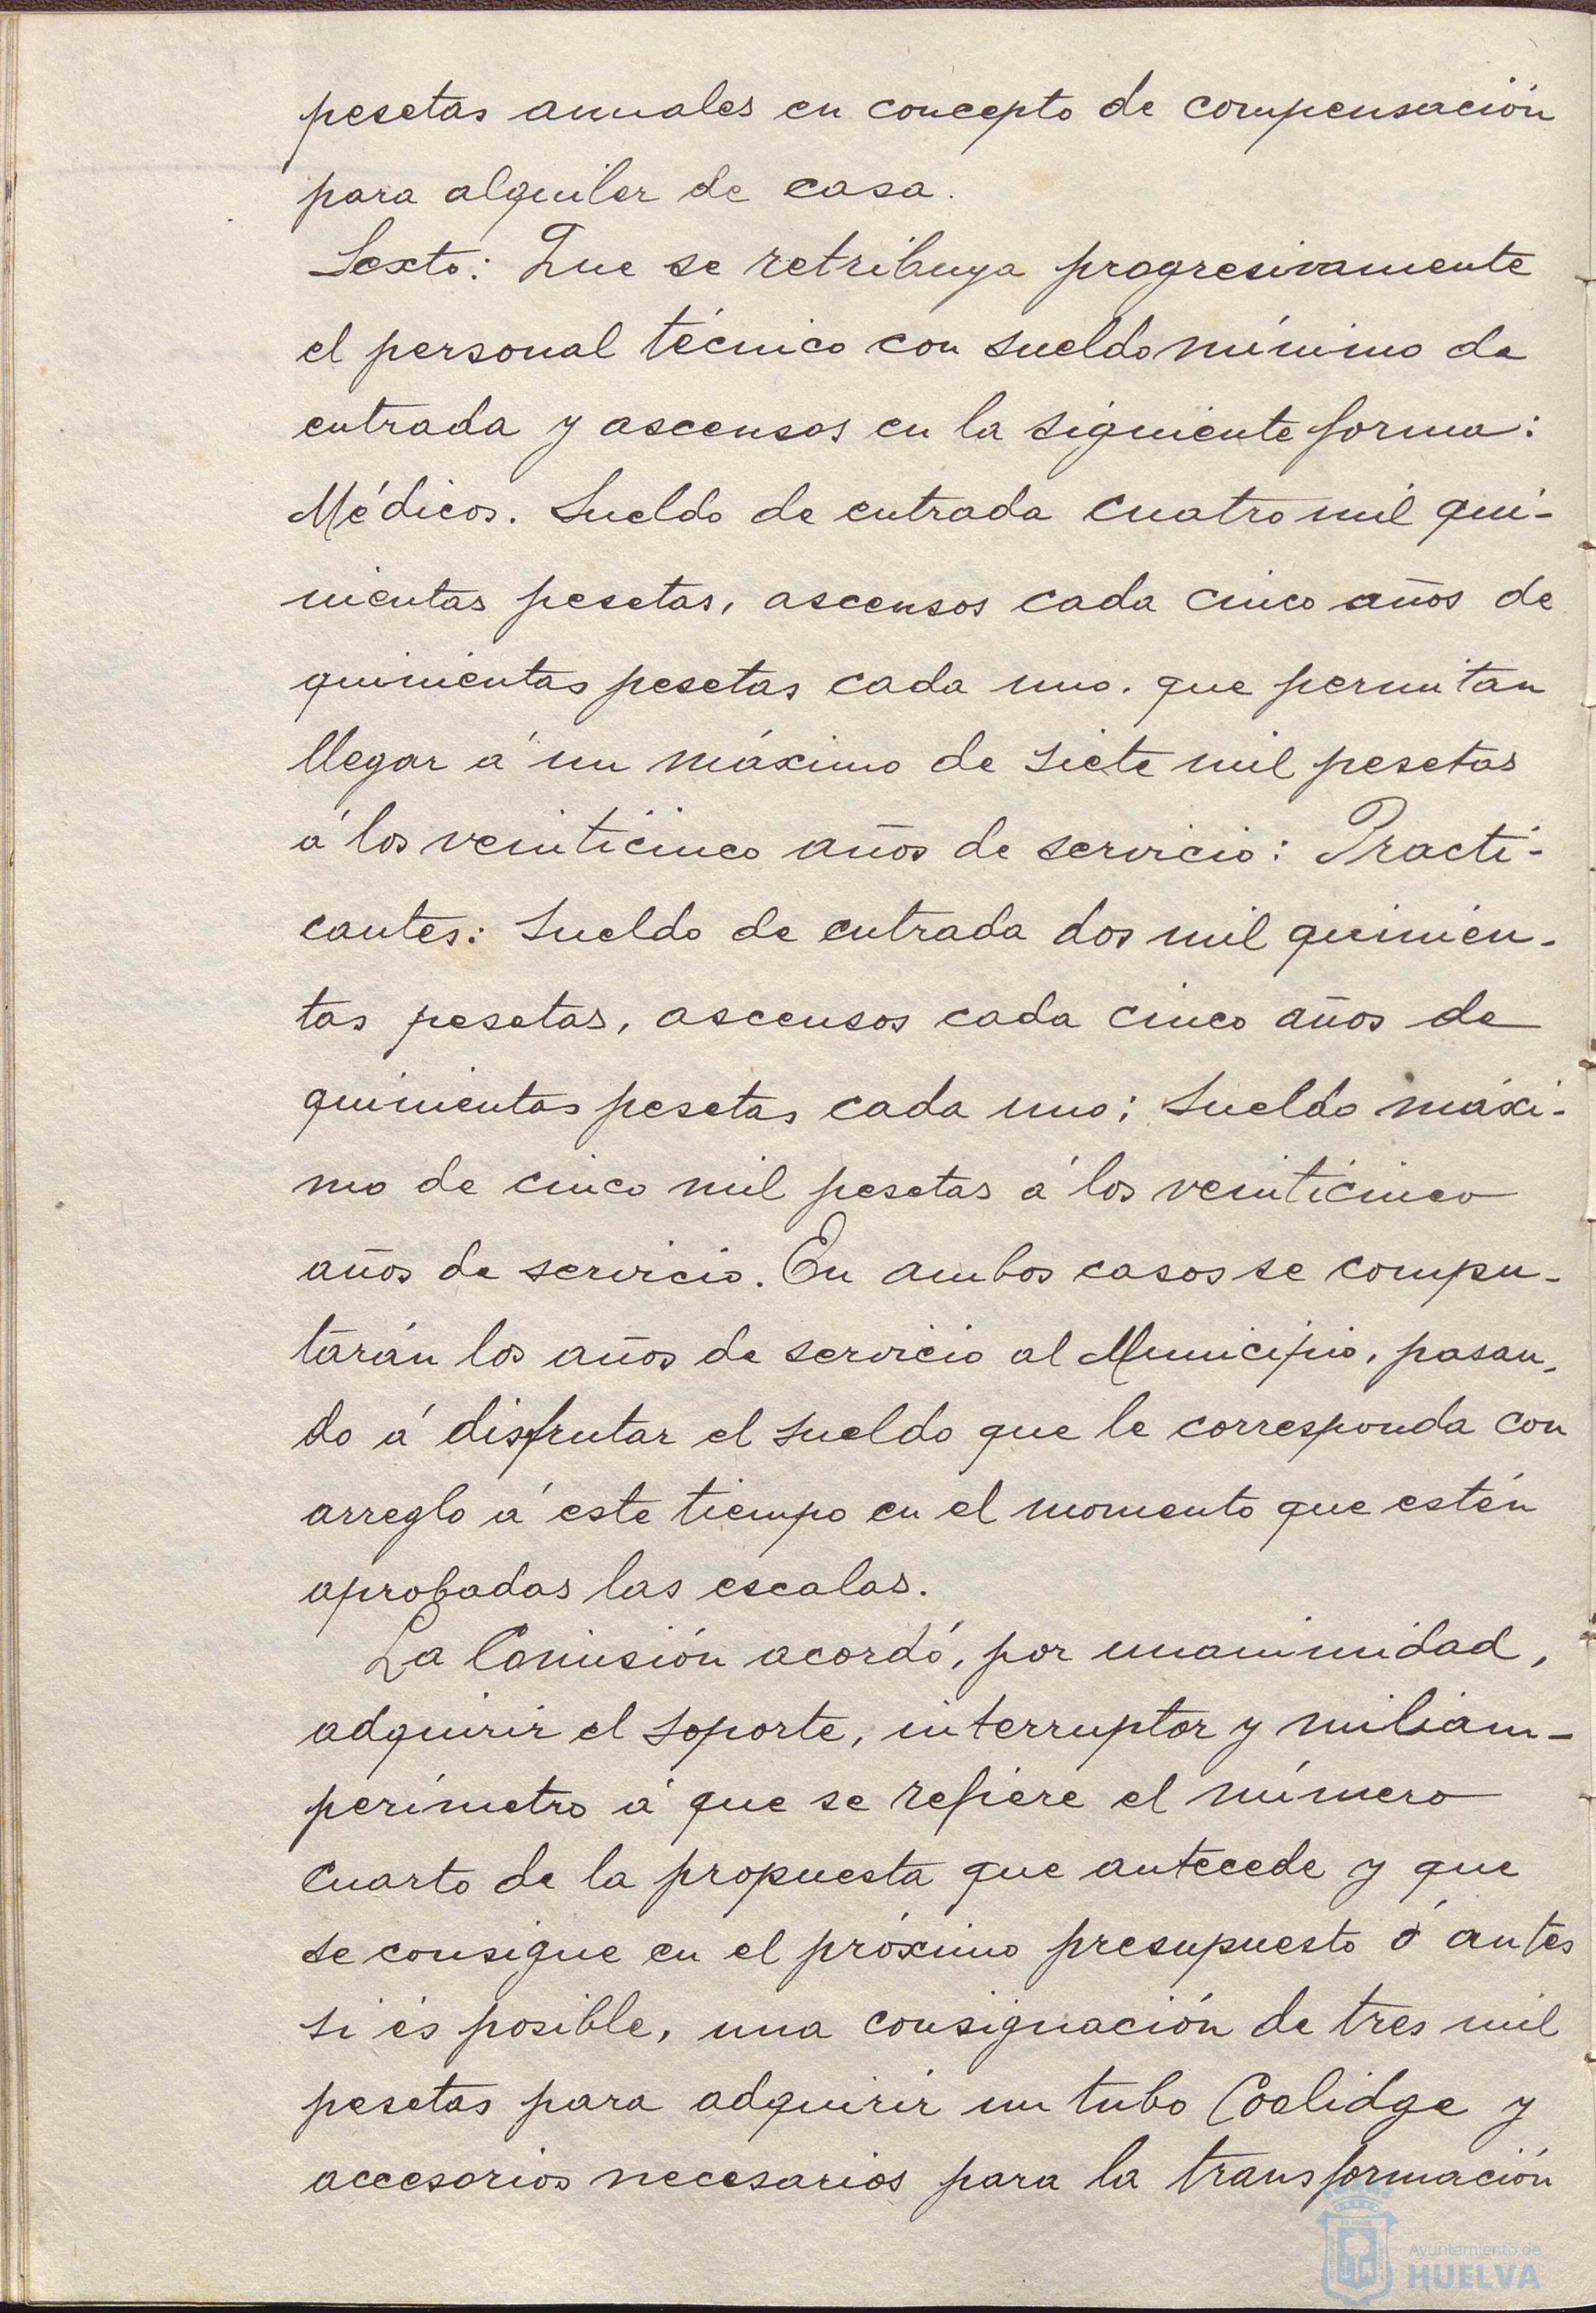 pesetas anuales en concepto de compensación
para alquiler de casa.
Sexto: Que se retribuya progresivamente
el personal técnico con sueldo mínimo de
entrada y ascensos en la siguiente forma:
Médicos. Sueldo de entrada cuatro mil qui-
nientas pesetas, ascensos cada cinco años de
quinientas pesetas cada uno. que permitan
llegar á un máximo de siete mil pesetas
á los veinticinco años de servicio: Practi-
cantes: Sueldo de entrada dos mil quinien-
tas pesetas, ascensos cada cinco años de
quinientas pesetas cada uno; sueldo máxi-
mo de cinco mil pesetas á los veinticinco
años de servicio. En ambos casos se compu-
tarán los años de servicio al Municipio, pasan-
do á disfrutar el sueldo que le corresponda con
arreglo á este tiempo en el momento que estén
aprobadas las escalas.
La Comisión acordó, por unanimidad,
adquirir el soporte, interruptor y miliam-
perímetro á que se refiere el número
cuarto de la propuesta que antecede y que
se consigue en el próximo presupuesto ó antes
si és posible, una consignación de tres mil
pesetas para adquirir un tubo Coolidge y
accesorios necesarios para la transformación
Ayuntamiento de
HUELVA